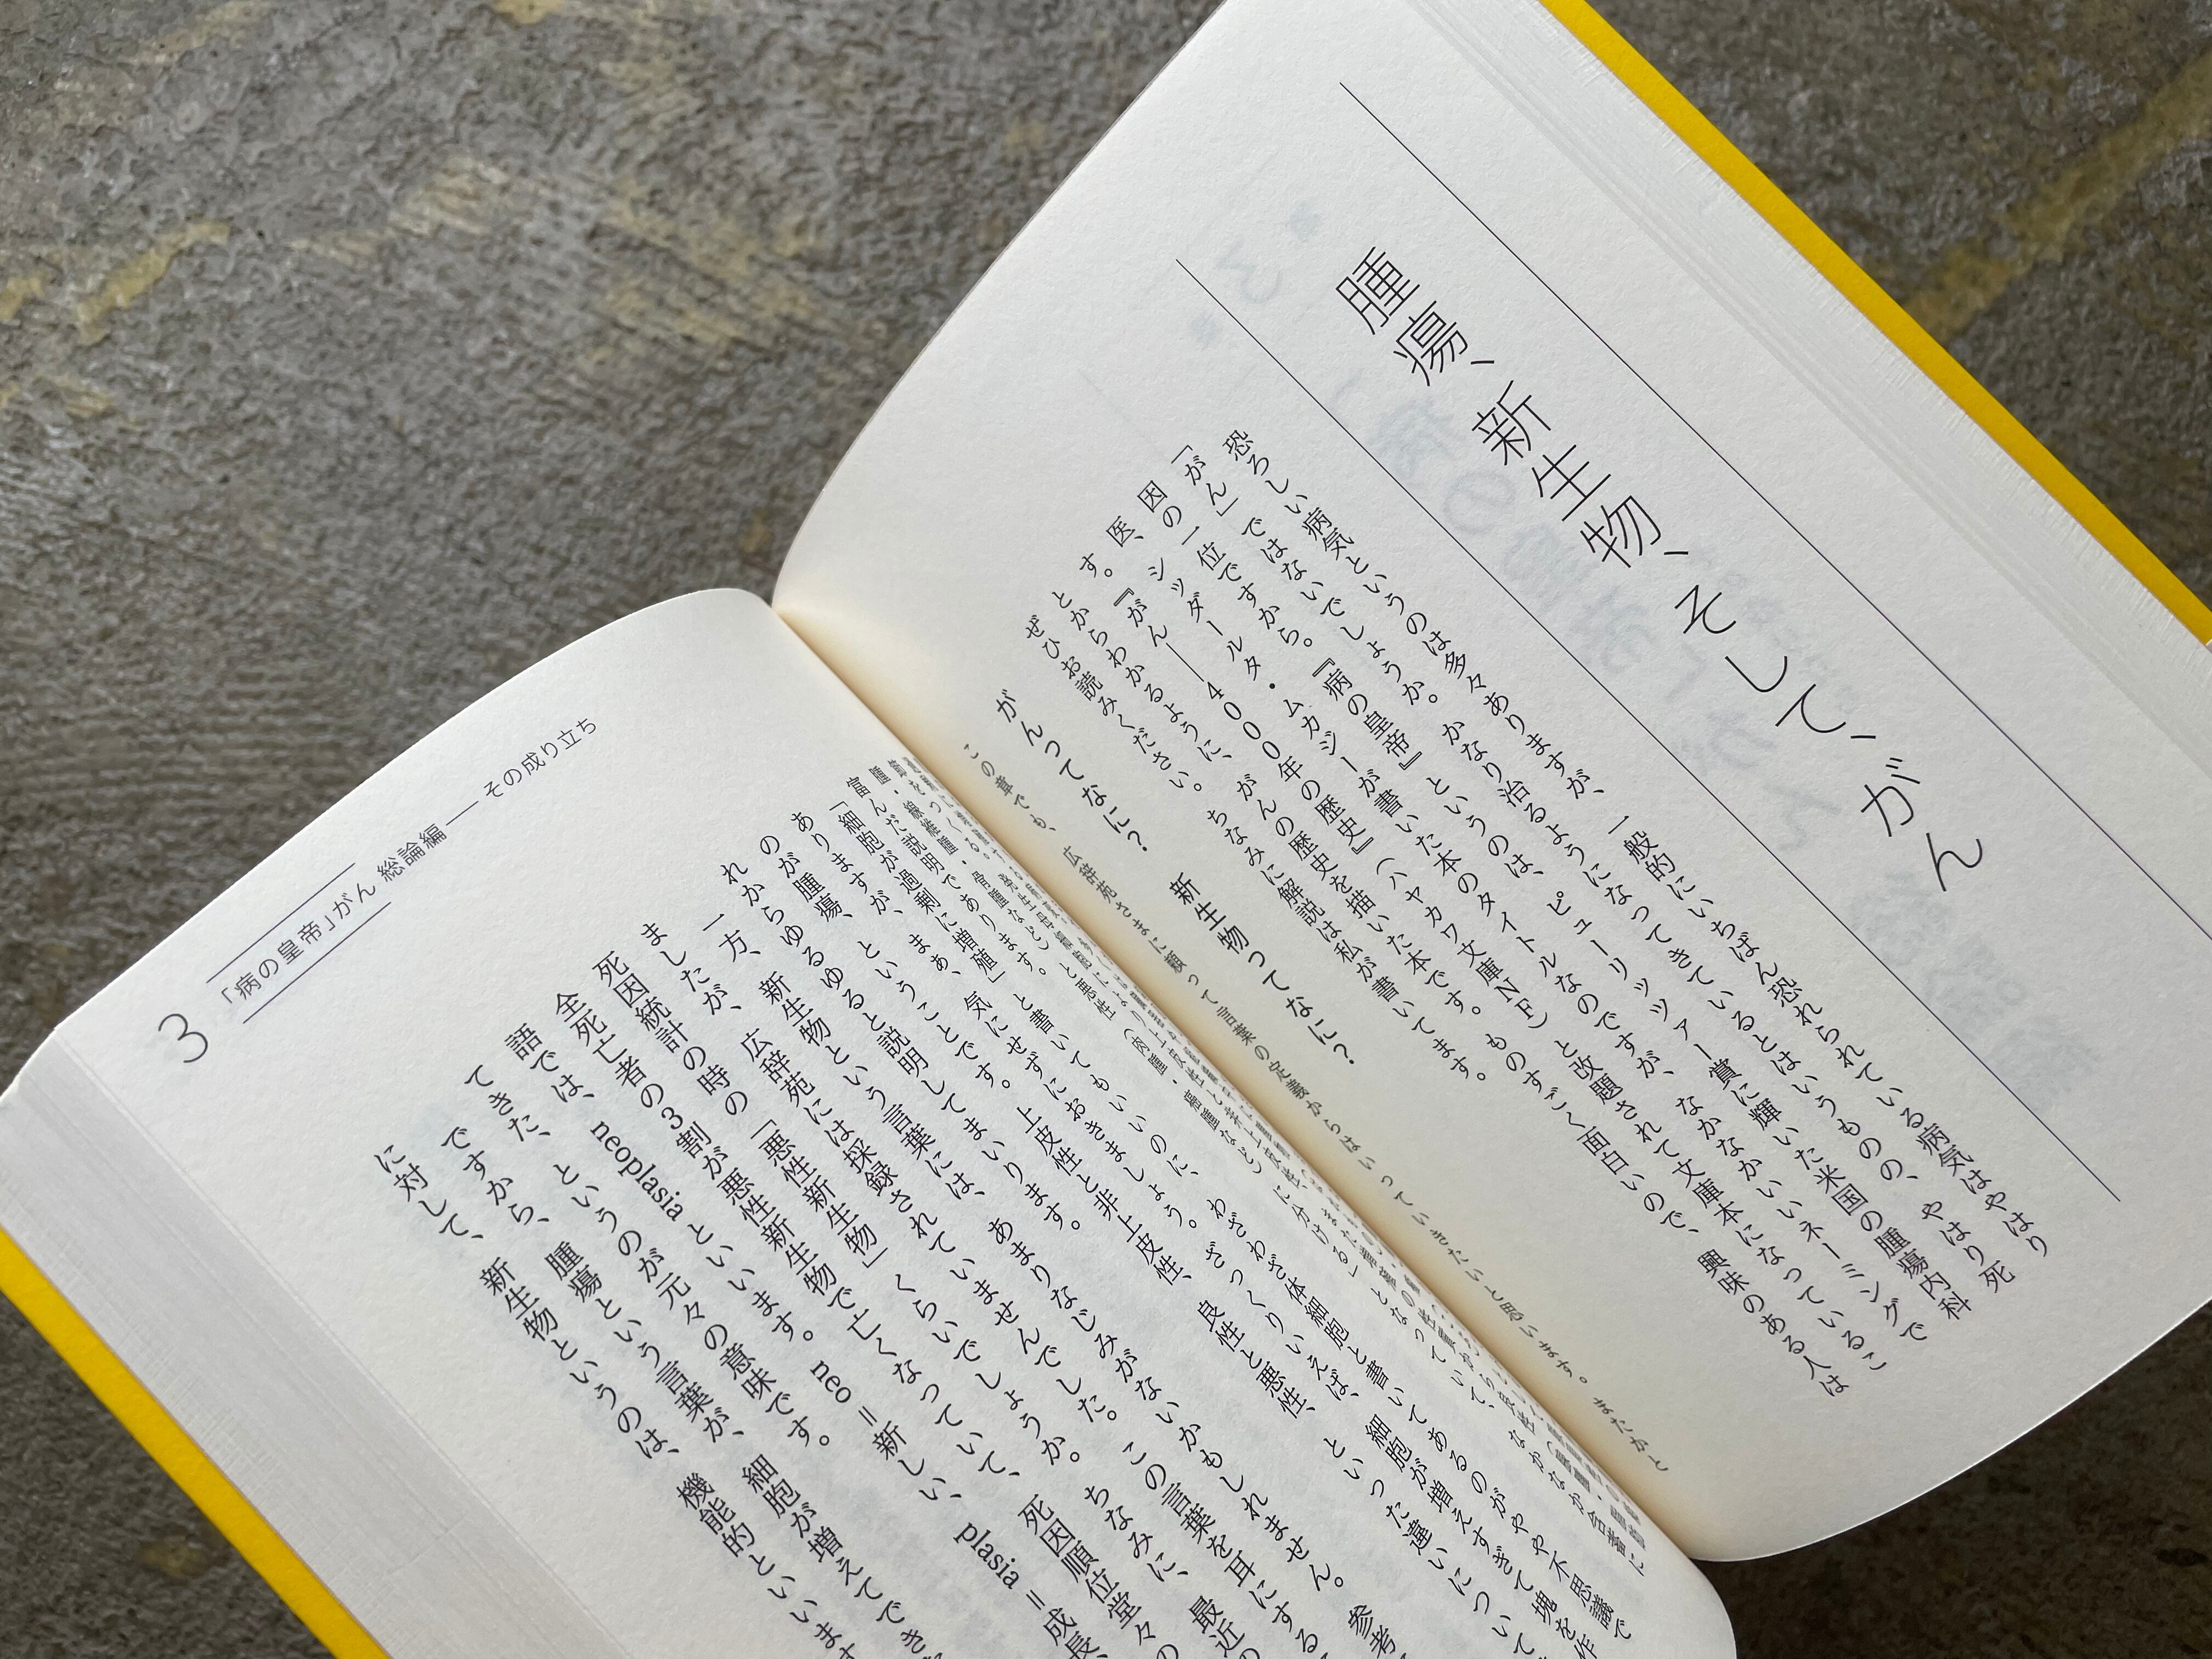 腫瘍、新生物、そして、がん
恐ろしい病気というのは多々ありますが、一般的にいちばん恐れられている病気はやはり
「がん」ではないでしょうか。かなり治るようになってきているとはいうものの、やはり死
因の一位ですから。『病の皇帝』というのは、ピューリッツァー賞に輝いた米国の腫瘍内科
医、シッダールタ・ムカジーが書いた本のタイトルなのですが、なかなかいいネーミングで
す。『がん―4000年の歴史』（ハヤカワ文庫NF）と改題されて文庫本になっているこ
とからわかるように、がんの歴史を描いた本です。ものすごく面白いので、興味のある人は
ぜひお読みください。ちなみに解説は私が書いてます。
がんってなに？ 新生物ってなに？
この章でも、広辞苑さまに頼って言葉の定義からはいっていきたいと思います。またかと
に分ける」となっていて、なかなか含蓄に
富んだ説明であります。
「細胞が過剰に増殖」と書いてもいいのに、わざわざ体細胞と書いてあるのがやや不思議で
ありますが、まぁ、気にせずにおきましょう。ざっくりいえば、細胞が増えすぎて塊を作
のが腫瘍、ということです。上皮性と非上皮性、良性と悪性、といった違いについて
れからゆるゆると説明してまいります。
一方、新生物という言葉には、あまりなじみがないかもしれません。参考
ましたが、広辞苑には採録されていませんでした。この言葉を耳にする
死因統計の時の「悪性新生物」くらいでしょうか。ちなみに、最近の
全死亡者の3割が悪性新生物で亡くなっていて、死因順位堂々の
語では、neoplasia といいます。neo＝新しい、plasia＝成長、
てきた、というのが元々の意味です。
ですから、腫瘍という言葉が、細胞が増えてでき
に対して、新生物というのは、機能的といいます
「病の皇帝」がん 総論編 ―― その成り立ち
3